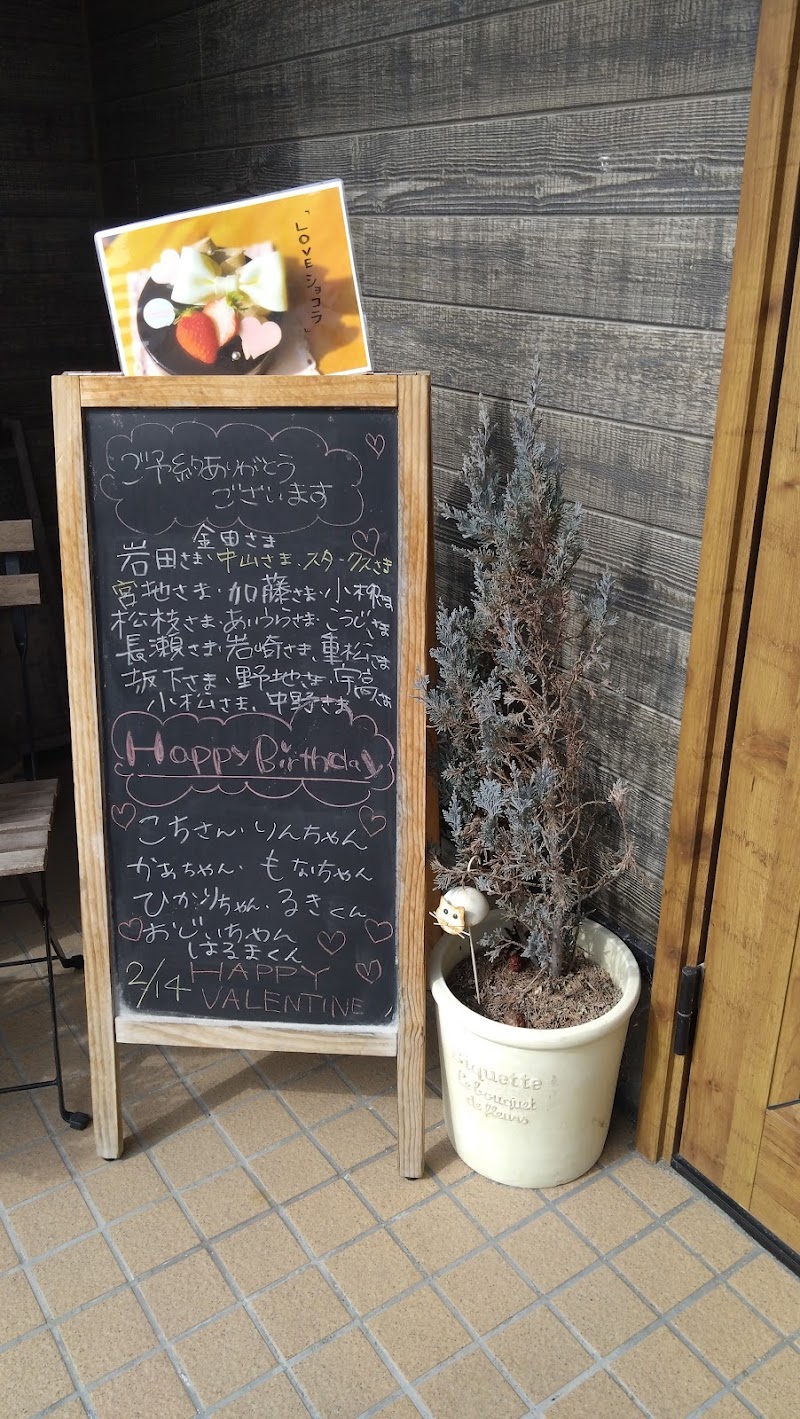 「LOVEショコラ」
ご予約ありがとう
ございます
金田さま
岩田さま・中山さま・スタークスさま
宮地さま・加藤さま・小林さま
松枝さま・あいうらさま・こうじさま
長瀬さま・岩崎さま、重松さま
坂下さま・野地さま・宇高さま
小松さま、中野さま
Happy Birthday
こちさん・りんちゃん
かあちゃん・もなちゃん
ひかりちゃん・るきくん
おじいちゃん
はるまくん
2/14 HAPPY
VALENTINE
etiquette
Le bouquet
de fleurs